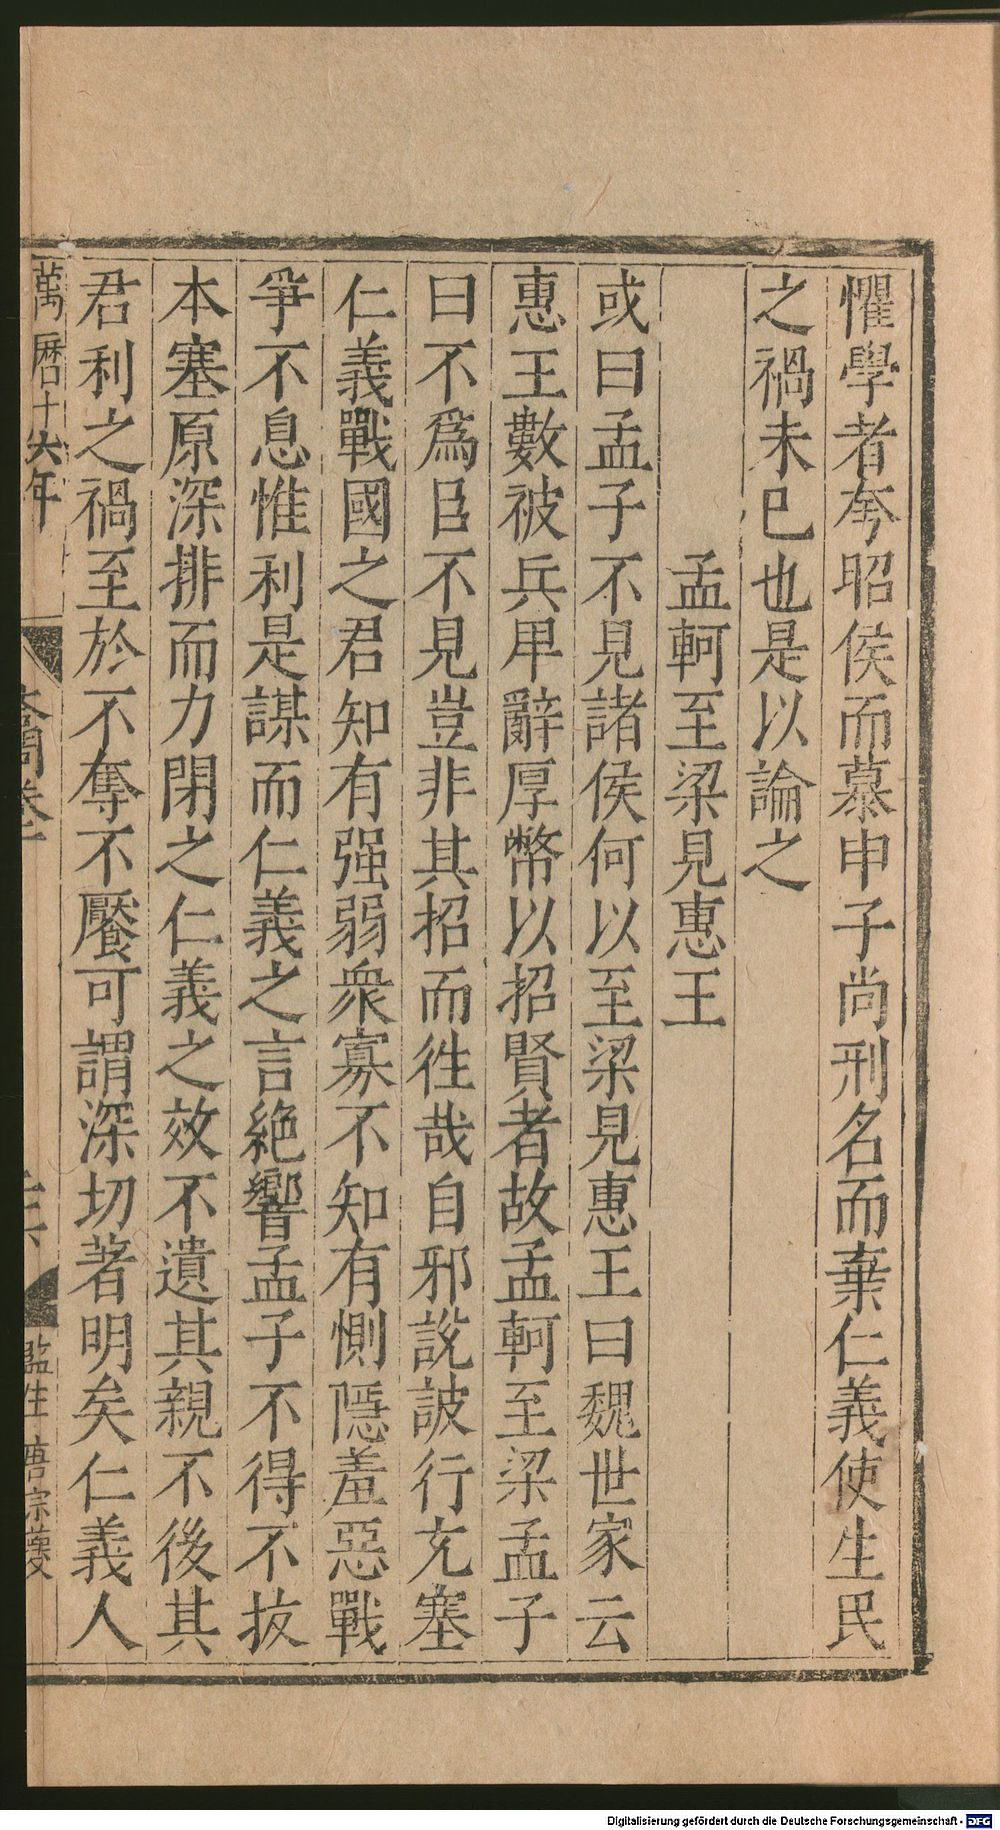 懼學者夸昭侯而慕申子尚刑名而棄仁義使生民
之禍未已也是以論之
孟軻至梁見惠王
或曰孟子不見諸侯何以至梁見惠王曰魏世家云
惠王數被兵甲辭厚幣以招賢者故孟軻至梁孟子
曰不爲臣不見豈非其招而徃哉自邪說詖行充塞
仁義戰國之君知有强弱衆寡不知有惻隱羞惡戰
爭不息惟利是謀而仁義之言絶響孟子不得不拔
本塞原深排而力閉之仁義之效不遺其親不後其
君利之禍至於不奪不饜可謂深切著明矣仁義人
萬曆十六年
監生唐宗
Digitalisierung gefördert durch die Deutsche Forschungsgemeinschaft - DFG